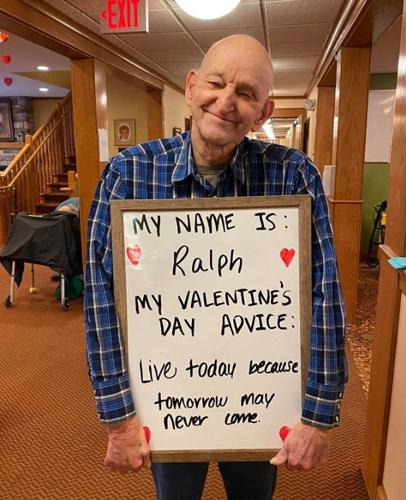 EXIT
MY NAME IS:
Ralph
MY VALENTINE'S
DAY ADVICE:
Live today because
tomorrow may
never come.